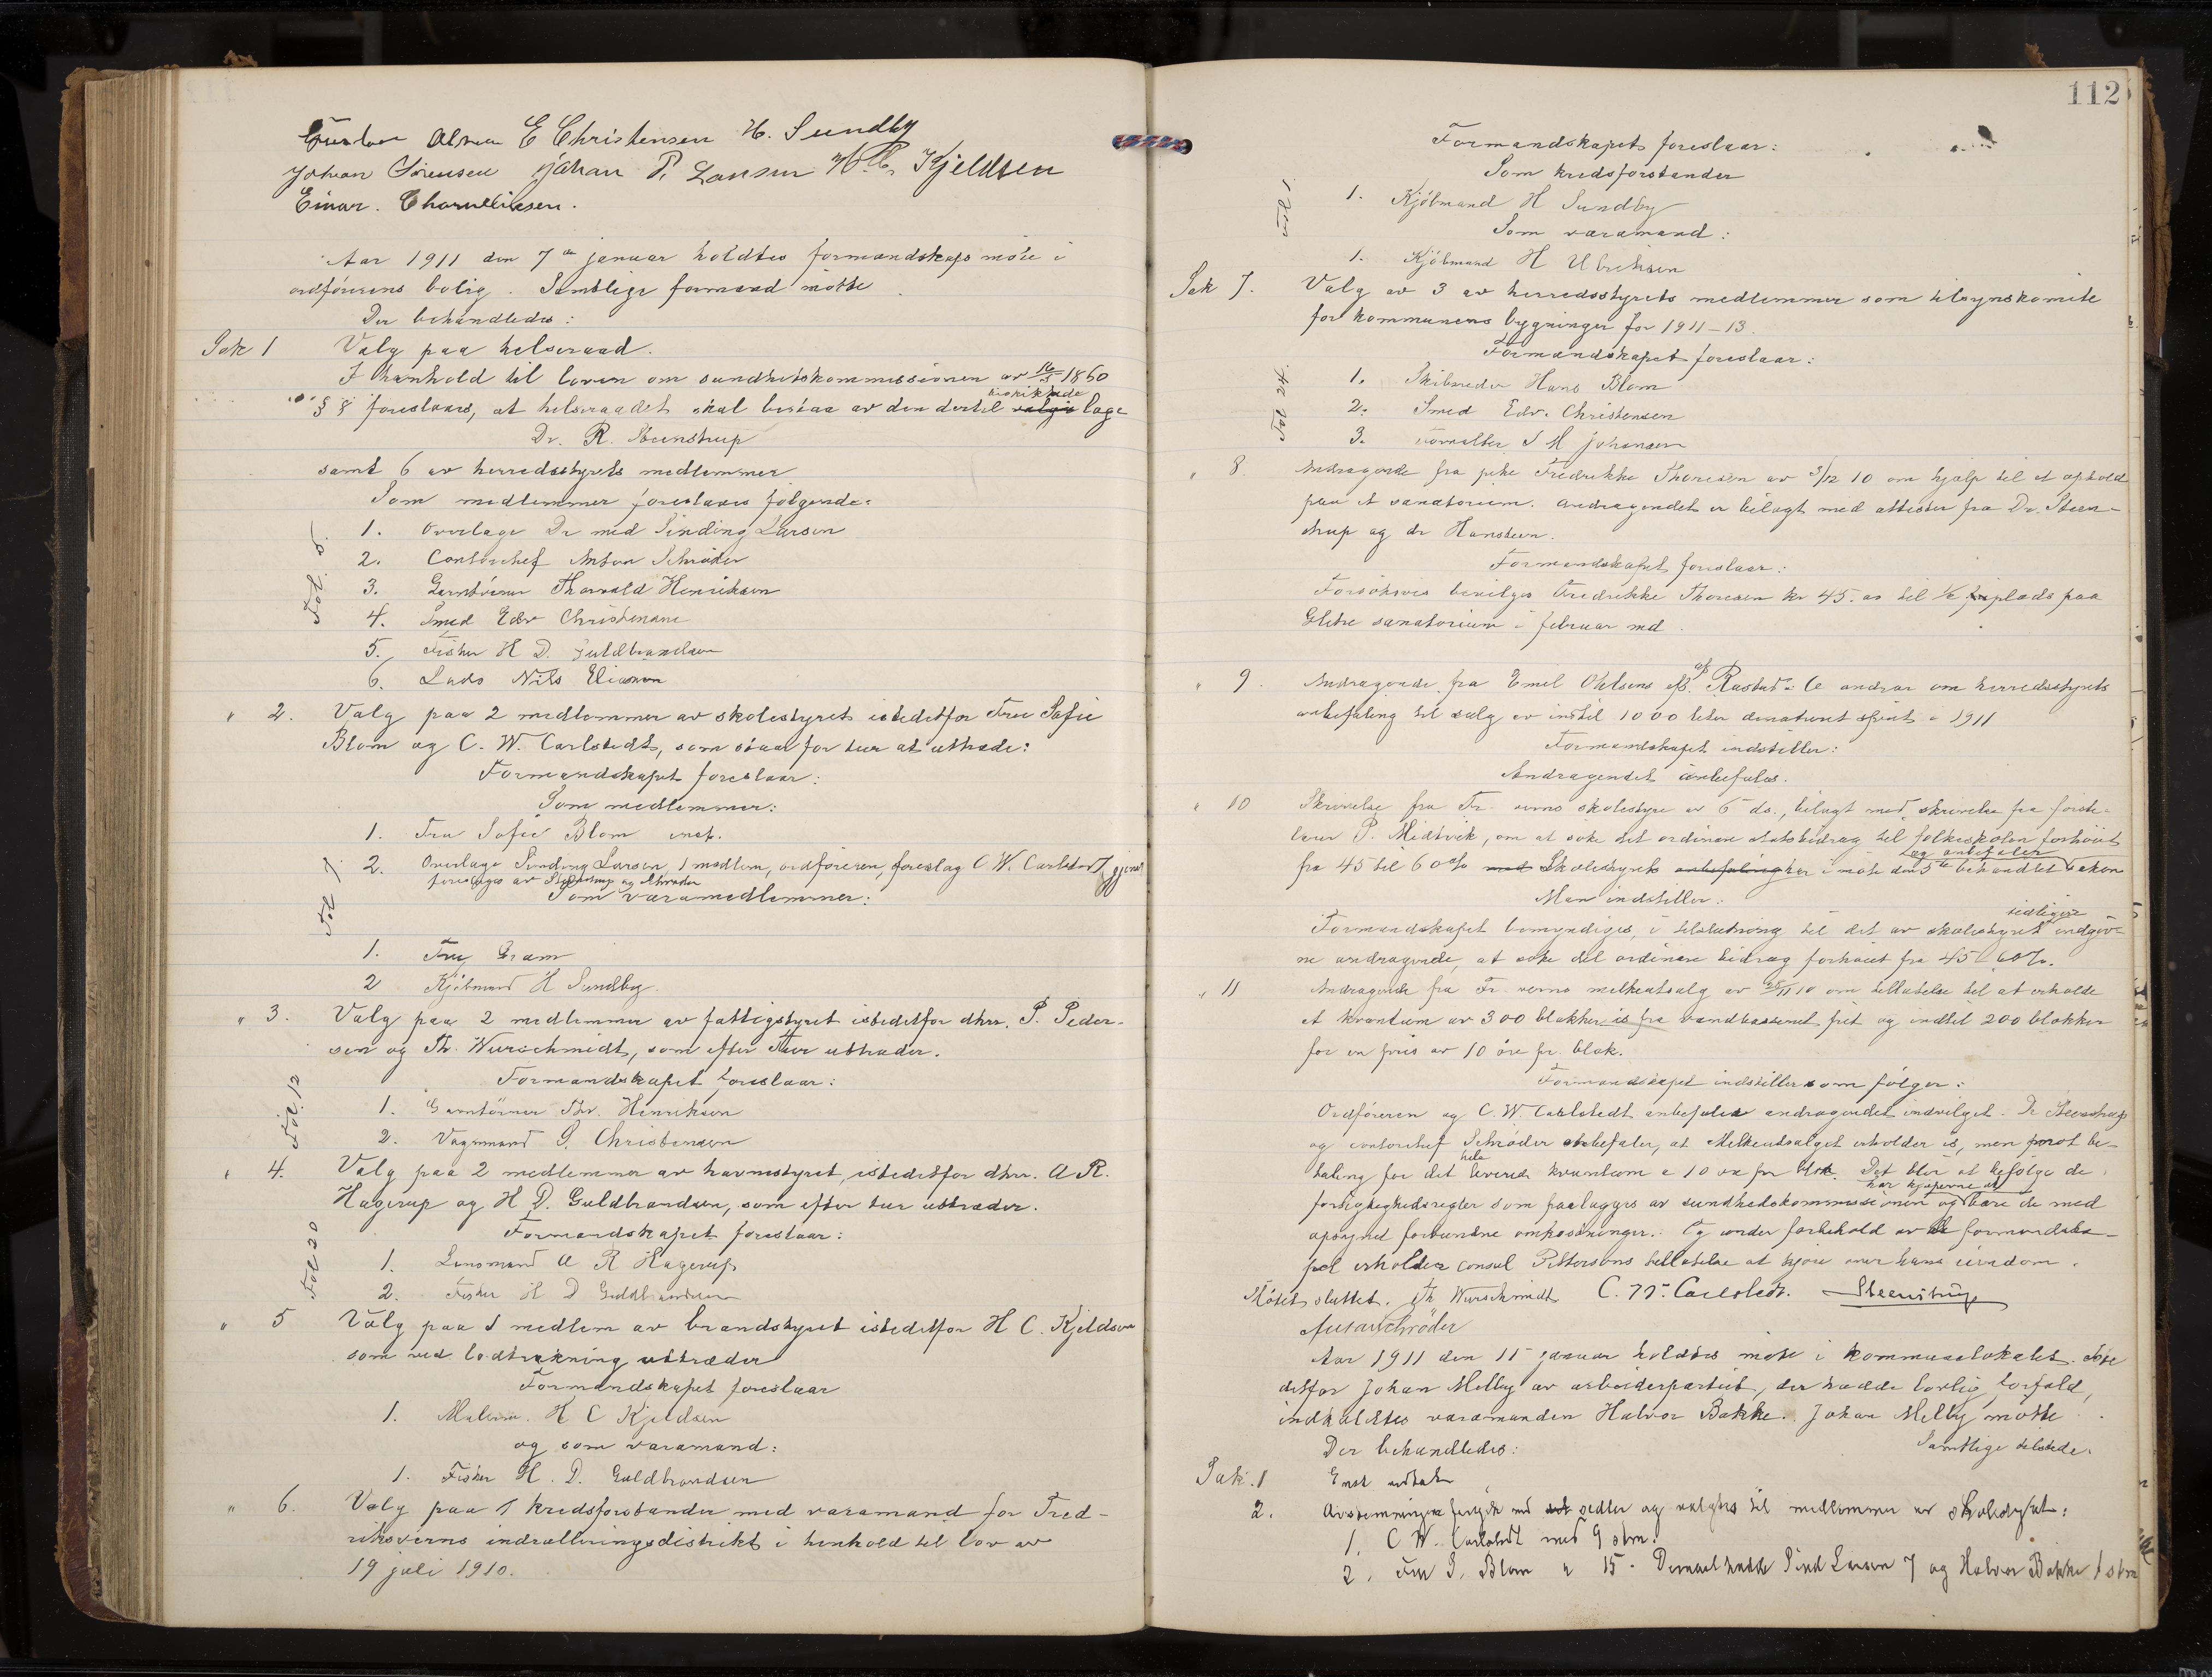 E Christensen H. Sundby
Johan Sørensen Johan P. Hansen H. C. Kjeldsen
Einar.
Aar 1911 den 7de januar holdtes formandskaps møte i
ordførerens bolig. Samtlige formænd møtte
Der behandledes:
Sak 1 Valg paa helseraad.
I henhold til loven om sundhetskommissionen av 16/5 1860
§ foreslaaes, at helseraadet skal bestaa av den dertil beskikkede læge
Dr. R. Steenstrup
samt 6 av herredsstyrets medlemmer
Som medlemmer foreslaaes følgende:
1. Overlæge Dr med Sinding Larsen
2. Contorchef Anton Schrøder
3. Garntørrer Thorvald Henriksen
4. Smed Edv Christensen
5. Fisker H D. Guldbrandsen
6. Lods Nils Eliassen
Fol. 5.
" 2. Valg paa 2 medlemmer av skolestyret istedetfor Fru Sofie
Blom og C. W. Carlstedt, som staar for tur at uttræde:
Formandskapet foreslaar:
Som medlemmer:
1. Fru Sofie Blom enst.
2. Overlæge Sinding Larsen, 1 medlem, ordføreren, foreslog C W. Carlstedt gjenv.
foresloges av Steenstrup og Schrøder
Som varamedlemmer:
Fol 7.
1. Fru Gram
2 Kjøbmand H Sundby.
" 3. Valg paa 2 medlemmer av fattigstyret istedetfor dhrr. P. Peder-
sen og Th. Wurschmidt, som efter tur uttræder.
Formandskapet foreslaar:
1. Garntørrer Thv. Henriksen
2. Vognmand S. Christensen
Fol. 12
" 4. Valg paa 2 medlemmer av havnestyret, istedetfor dhrr. A R.
Hagerup og H D. Guldbrandsen, som efter tur uttræder.
Formandskapet foreslaar:
1. Lensmand A R Hagerup
2. Fisker H D Guldbrandsen
Fol 20
" 5 Valg paa 1 medlem av brandstyret istedetfor H C. Kjeldsen
som ved lodtrækning uttræder
Formandskapet foreslaar
1. Malerm. H C Kjeldsen
og som varamand:
1. Fisker H. D. Guldbrandsen
" 6. Valg paa 1 kredsforstander med varamand for Fred-
riksværns indrulleringsdistrikt i henhold til lov av
19 juli 1910.
112
Formandskapet foreslaar:
Som kredsforstander
1. Kjøbmand H Sundby
Som varamand:
1. Kjøbmand H Ulrichsen
Sak 7. Valg av 3 av herredsstyrets medlemmer som tilsynskomite
for kommunens bygninger for 1911-13.
Formandskapet foreslaar:
1. Skibsreder Hans Blom
2. Smed Edv. Christensen
3. Forvalter S M Johansen
" 8. Andragende fra pike Fredrikke Thoresen av 3/12 10 om hjælp til et ophold
paa et sanatorium. Andragendet er bilagt med attester fra Dr. Steen-
strup og dr Hansteen.
Formandskapet foreslaar:
Forsøksvis bevilges Fredrikke Thoresen kr 45.00 til ½ friplads paa
Glitre sanatorium i februar md.
" 9. Andragende fra Emil Ohlsens eft. Rastad & Co andrar om herredsstyrets
anbefaling til salg av indtil 1000 liter denaturert sprit i 1911
Formandskapet indstiller:
Andragendet anbefales.
" 10 Skrivelse fra Fr. værns skolestyre av 6te ds., bilagt med skrivelse fra første-
lærer P. Midtvik, om at søke det ordinære statsbidrag til folkeskolen forhøiet
fra 45 til 60% med Skolestyrets anbefaling har i møte den 5te behandlet og anbefaler saken
Man indstiller:
Formandskapet bemyndiges, i tilslutning til det av skolestyret tidligere indgiv-
ne andragende, at søke det ordinære bidrag forhøiet fra 45-60%.
" 11 Andragende fra Fr. værns melkeutsalg av 28/11 10 om tillatelse til at erholde
et kvantum av 300 blokker is fra vandbassenet frit og indtil 200 blokker
for en pris av 10 øre pr. blok.
Formandskapet indstiller som følger:
Ordføreren og C. W. Carlstedt anbefaler andragendet indvilget. Dr Steenstrup
og contorchef Schrøder anbefaler, at Melkeutsalget erholder is, men mot be-
taling for det hele leverede kvantum a 10 øre pr blok. Det blir at befølge de
forsigtighedsregler som paalægges av sundhedskommissionen og har kjøperne at bære de med
opsynet forbundne omkostninger. Og under forbehold av at formandska-
pet erholder consul Pettersens tillatelse at kjøre over hans eiendom.
Møtet sluttet. Th Wurschmidt C. W. Carlstedt. Steenstrup
Anton Schrøder
Aar 1911 den 11 januar holdtes møte i kommunelokalet. Iste
detfor Johan Melby av arbeiderpartiet, der hadde lovlig forfald,
indkaldtes varamanden Halvor Bakke. Johan Melby møtte.
Der behandledes: Samtlige tilstede.
Sak. 1 Enst vedtat
2. Avstemningen foregik med sedler og valgtes til medlemmer av skolestyret:
1. C W. Carlstedt med 9 stm.
2. Fru S. Blom " 15 - Dernæst hadde Sind Larsen 7 og Halvor Bakke 1 stm